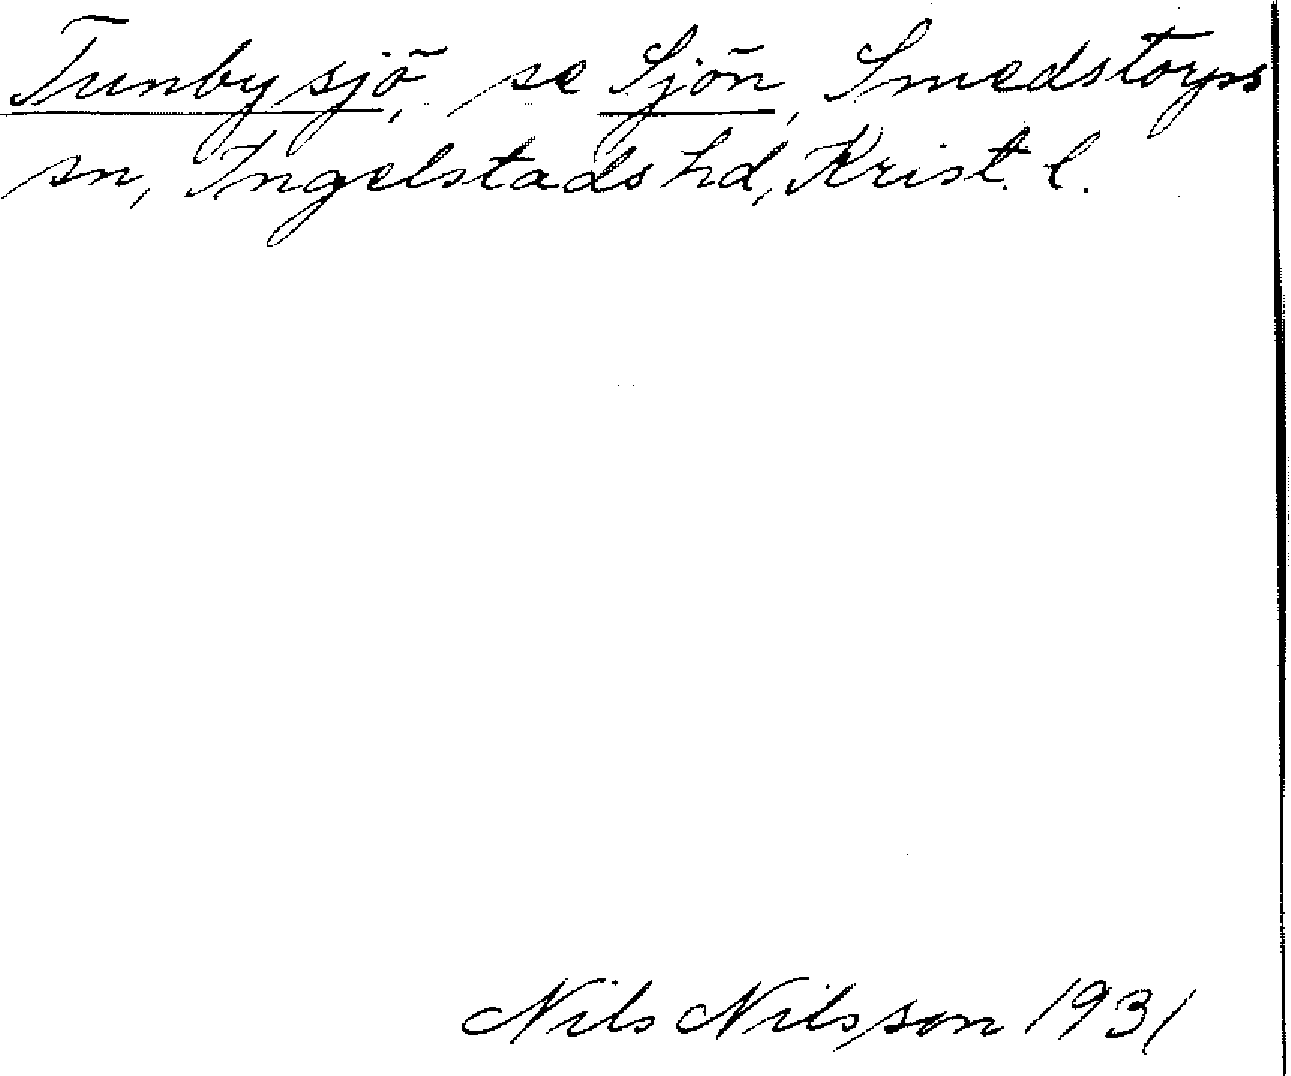 Tunby sjö, se Sjön, Smedstorps
sn, Ingelstads hd, Krist. l.
Nils Nilsson 1931